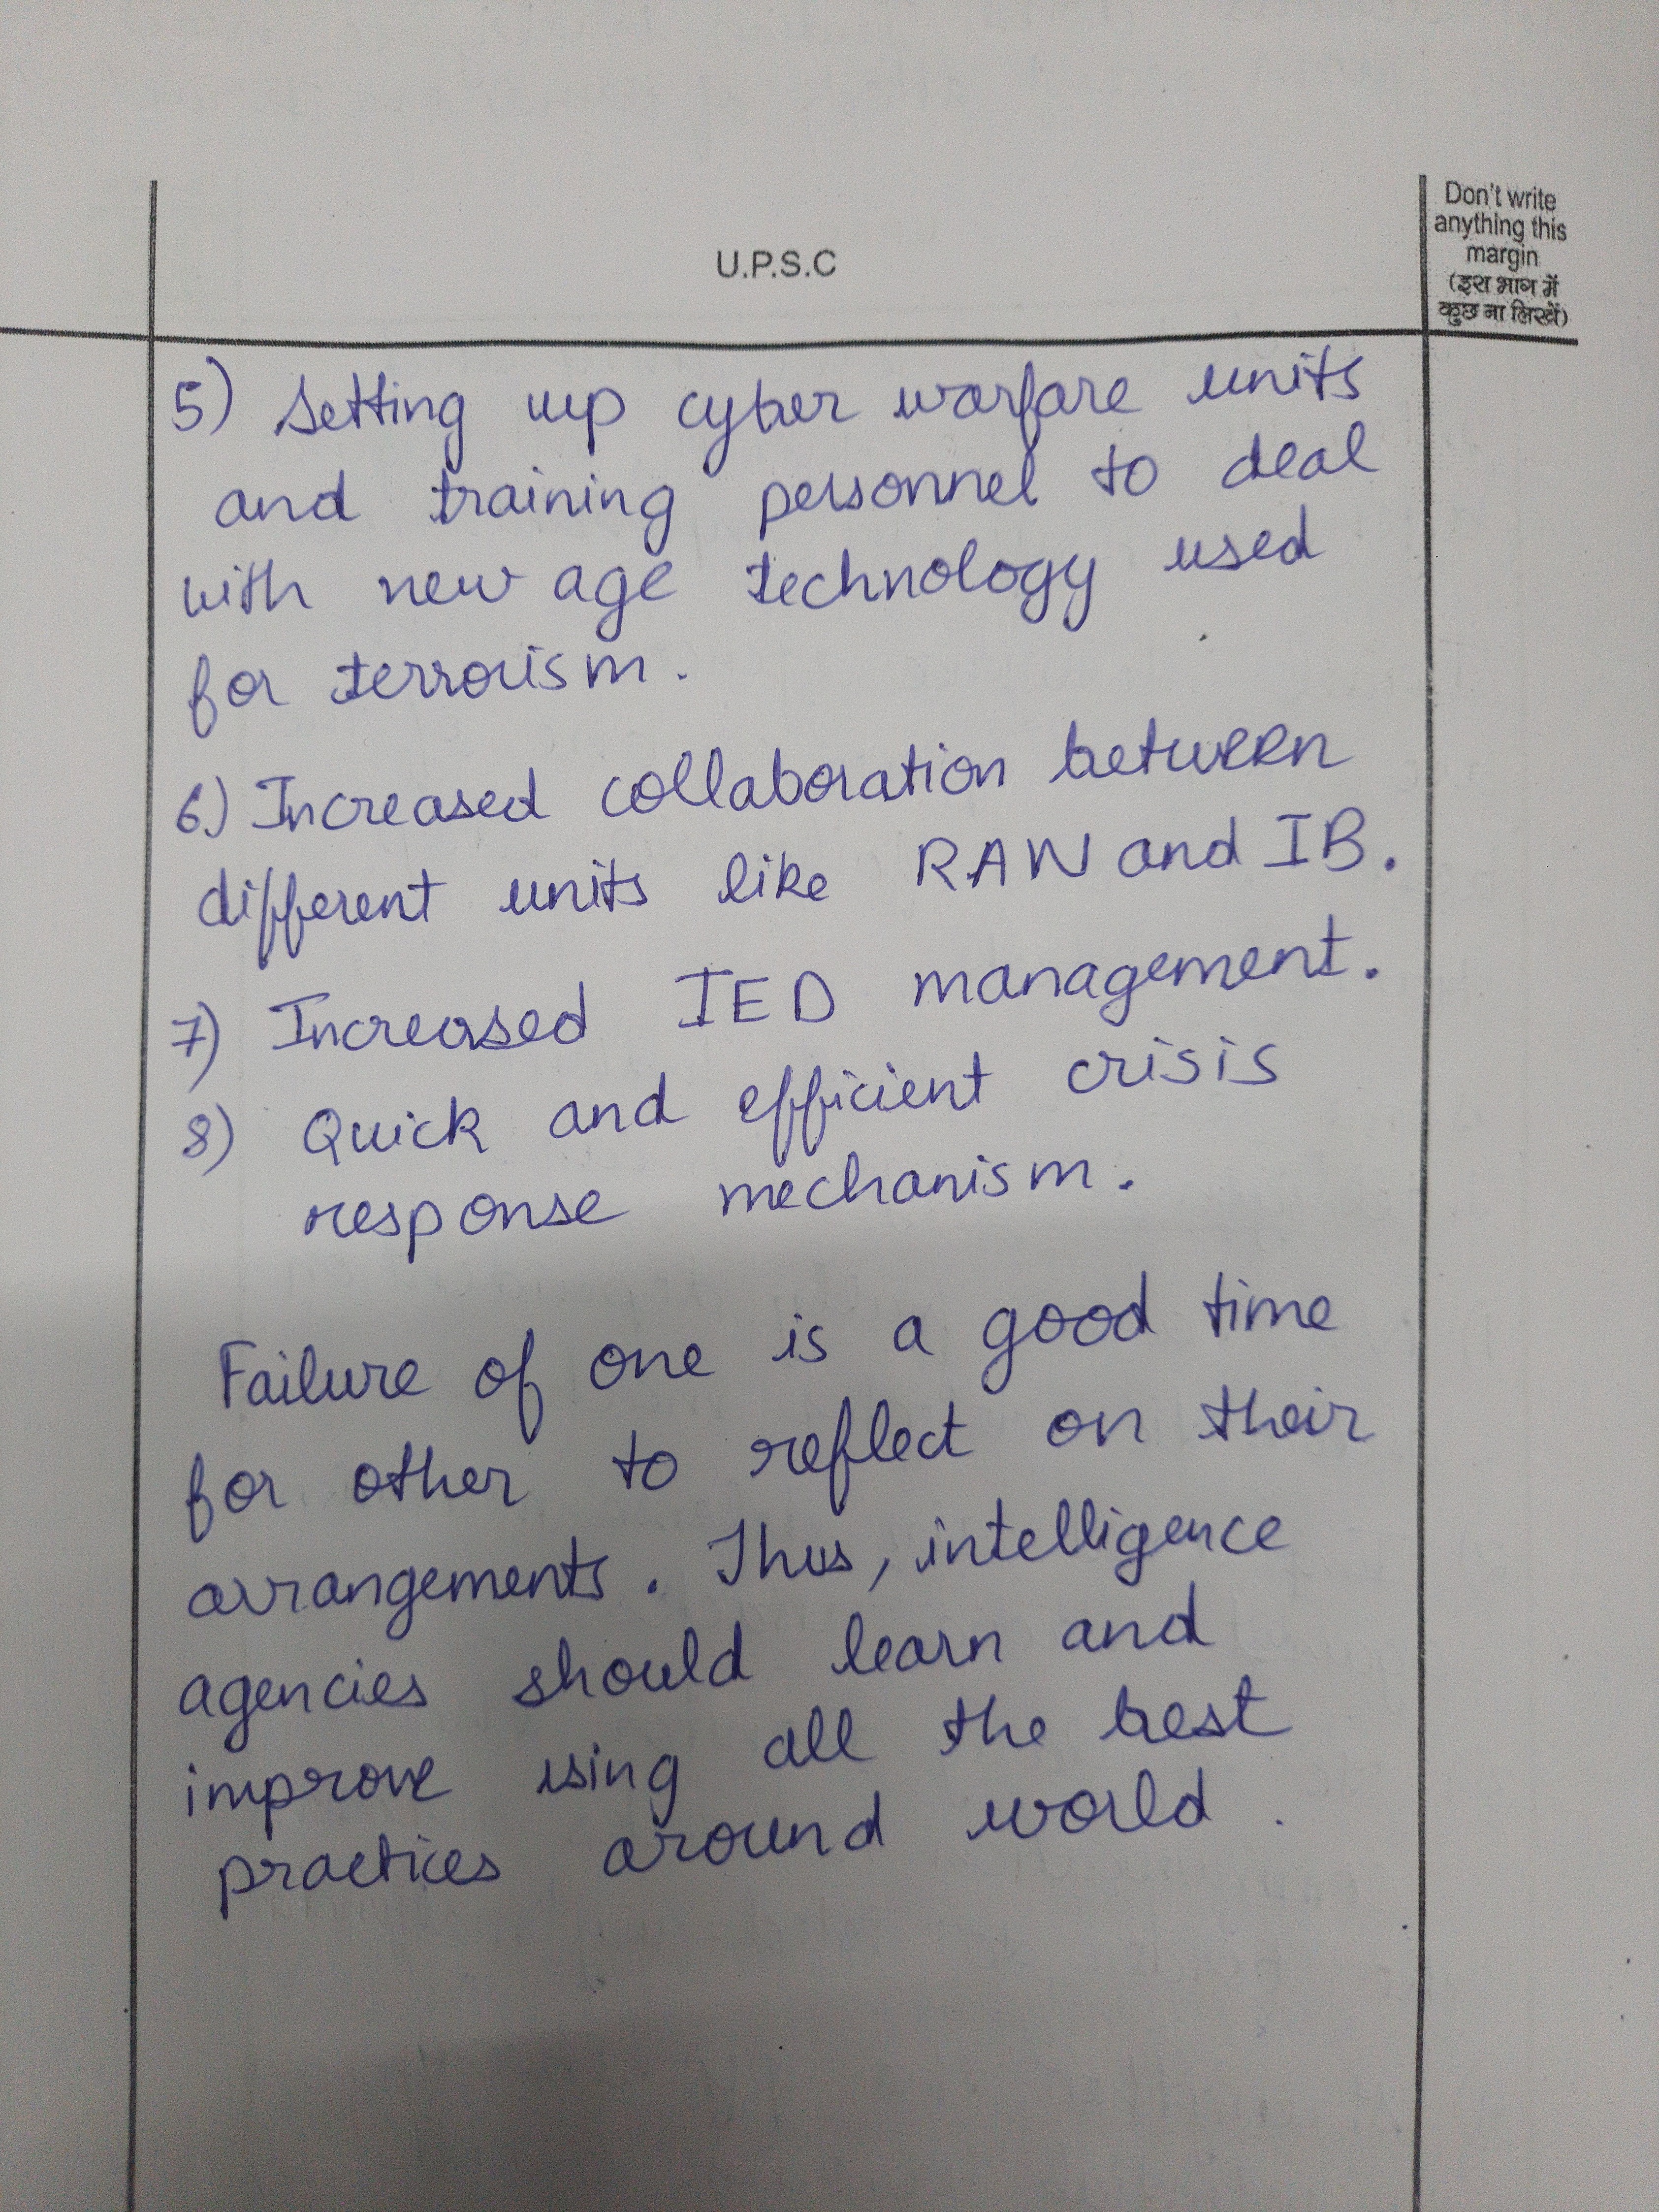 Don't write
anything this
margin
(इस भाग में
कुछ ना लिखें)
U.P.S.C
5) Setting up cyber warfare units
and training personnel to deal
with new age technology used
for terrorism.
6) Increased collaboration between
different units like RAW and IB.
7) Increased IED management.
8) Quick and efficient crisis
response mechanism.
Failure of one is a good time
for other to reflect on their
arrangements. Thus, intelligence
agencies should learn and
improve using all the best
practices around world.